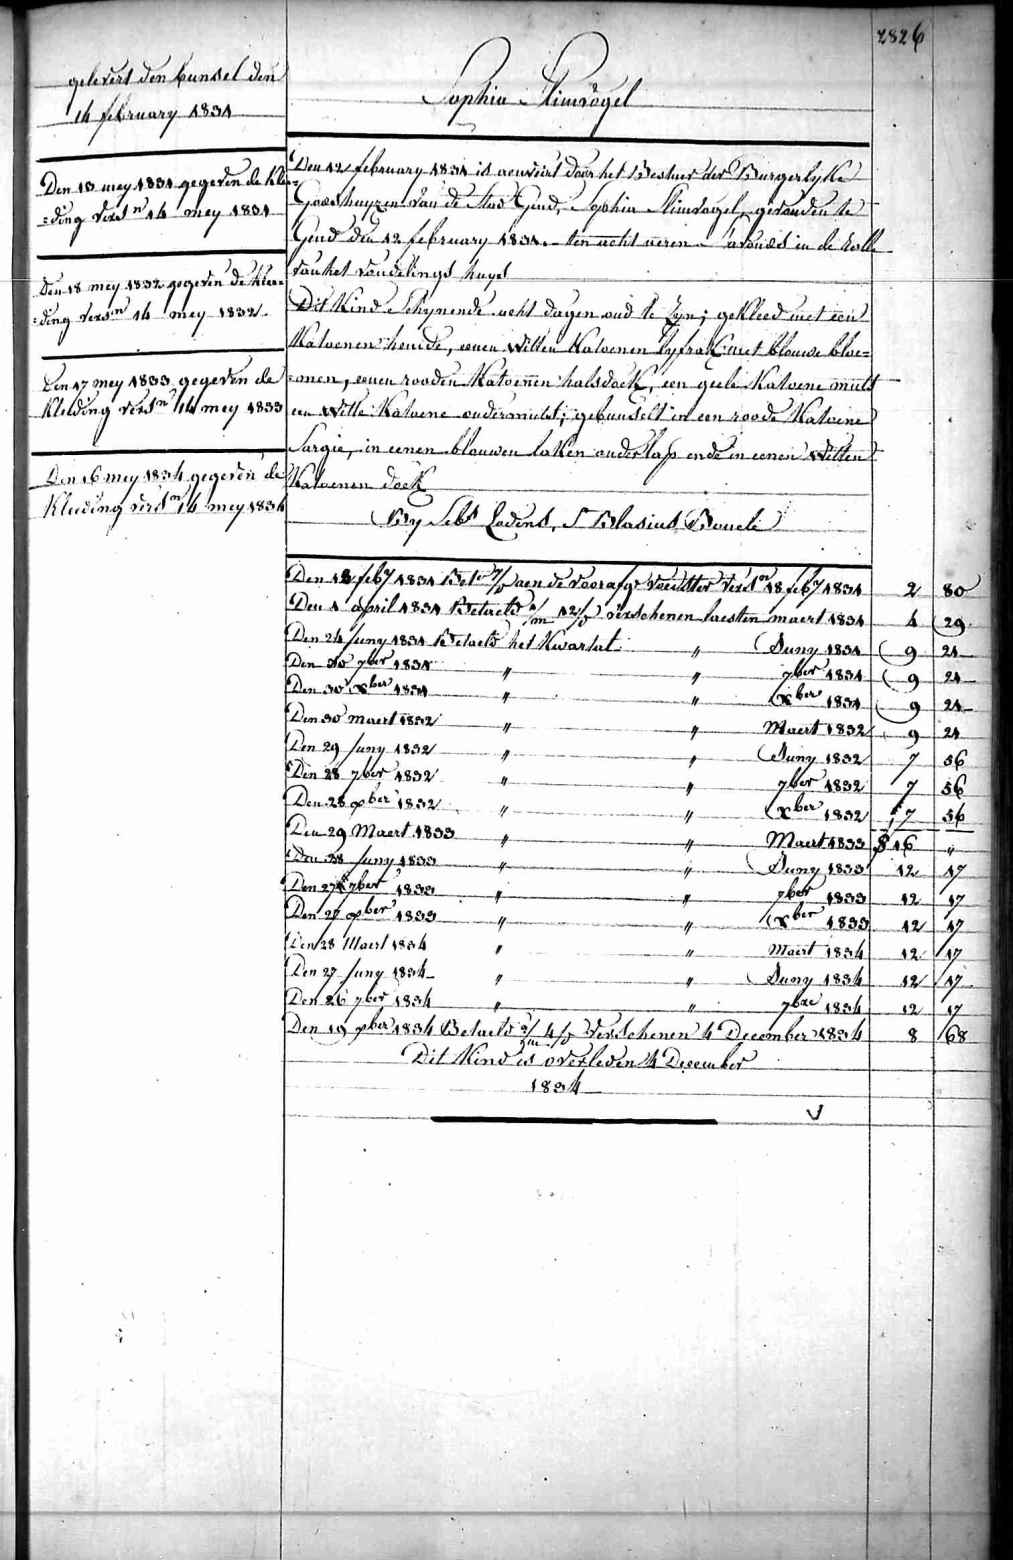 2826
gelevert den bunsel den
14 february 1831
Den 13 mey 1831 gegeven de klee=
=ding versn 14 mey 1831
Den 18 mey 1832 gegeven de klee=
=ding versn 14 mey 1832
Den 17 mey 1833 gegeven de
kleeding versn 14 mey 1833
Den 16 mey 1834 gegeven de
kleeding versn 14 mey 1834
Sophia Slimvogel
Den 12 february 1831 is aenveird door het Bestier der Burgerlyke
Godshuyzen van de Stad Gend, Sophia Slimvogel, gevonden te
Gend den 12 february 1831. ten acht uren 's avonds in de rolle
van het vondelings huys
Dit Kind schynende acht dagen oud te zyn; gekleed met een
Katoenen hemde, eenen witten Katoenen lyfrak met blauwe bloe=
=men, eenen rooden Katoenen halsdoek, een geele Katoene muts
een witte Katoene ondermuts; gebunselt in een roode Katoene
Sargie, in eenen blauwen laken onderlap ende in eenen witten
Katoenen doek
By Sebn Lodens, St Blasius Boucle
Den 18 feby 1831 aen de voorafge voedster versn 18 feby 1831 2 80
Den 1 april 1831 Betaeld 1/m 12/d verschenen laesten maert 1831 4 29
Den 24 Juny 1831 Betaeld het Kwartal " Juny 1831 9 21
Den 30 7ber 1831 " " 7ber 1831 9 21
Den 30 Xber 1831 " " Xber 1831 9 21
Den 30 maert 1832 " " Maert 1832 9 21
Den 29 Juny 1832 " " Juny 1832 7 56
Den 28 7ber 1832 " " 7ber 1832 7 56
Den 28 Xber 1832 " " Xber 1832 7 56
Den 29 Maert 1833 " " Maert 1833 16 "
Den 28 Juny 1833 " " Juny 1833 12 17
Den 27 7ber 1833 " " 7ber 1833 12 17
Den 27 Xber 1833 " " Xber 1833 12 17
Den 28 Maert 1834 " " Maert 1834 12 17
Den 27 Juny 1834 " " Juny 1834 12 17
Den 26 7ber 1834 " " 7bre 1834 12 17
Den 19 Xber 1834 Betaeld 2/m 4/d verschenen 4 December 1834 8 68
Dit Kind is overleden 4 December
1834